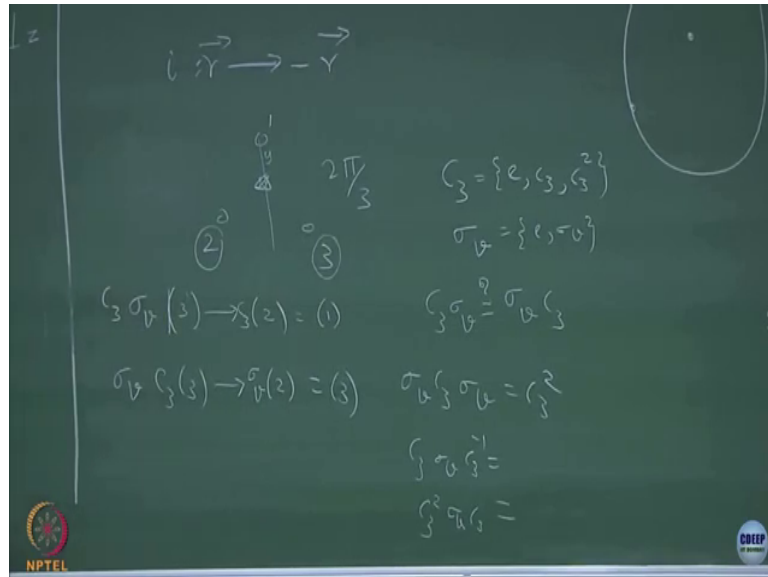 i : r⃗ → - r⃗
1
y
2π/3
2
3
C₃ = {e, c₃, c₃²}
σᵥ = {e, σᵥ}
C₃ σᵥ (3) → C₃(2) = (1)
C₃ σᵥ ≟ σᵥ C₃
σᵥ C₃ (3) → σᵥ(2) = (3)
σᵥ C₃ σᵥ = C₃²
C₃ σᵥ C₃⁻¹ =
C₃² σᵥ C₃ =
NPTEL
CDEEP